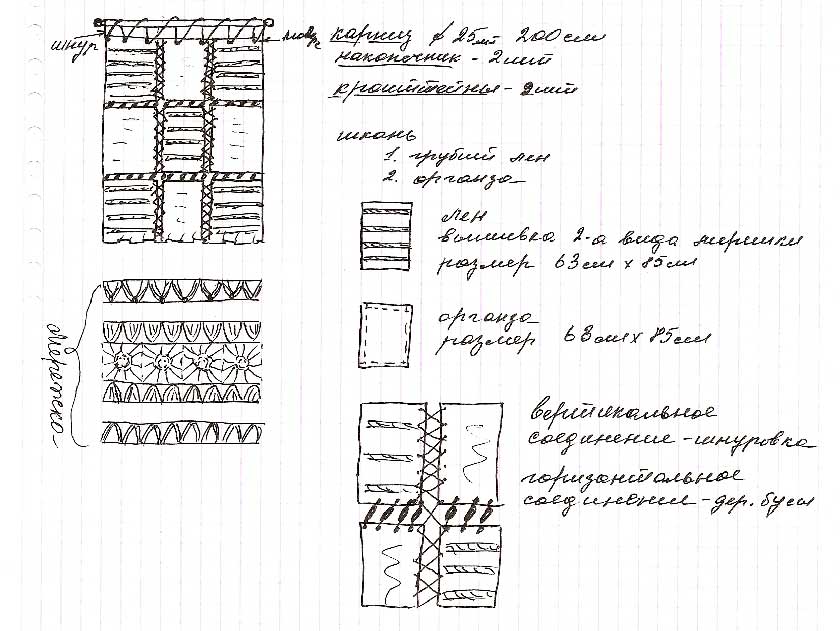 шнур
карниз ϕ 25мм 200см
наконечник - 2шт
кронштейны - 2шт
ткань
1. грубый лен
2. органза
лен
вышивка 2-а вида мережки
размер 63см х 85см
органза
размер 63см х 85см
Мережка
вертикальное
соединение - шнуровка
горизонтальное
соединение - дер. бусы